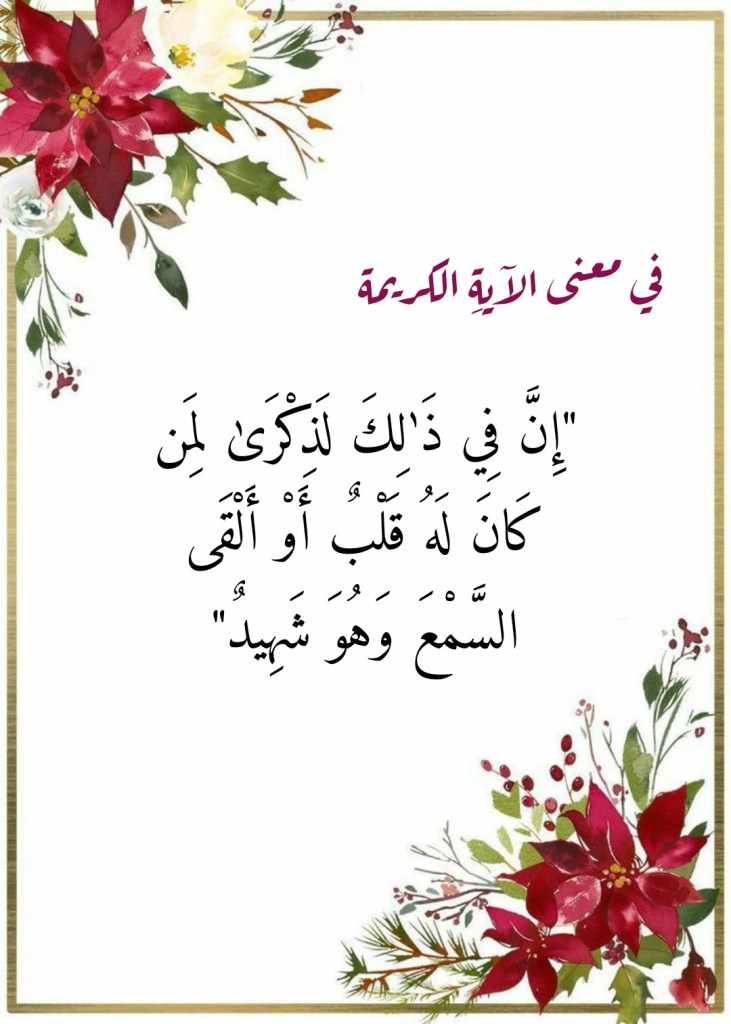 في معنى الآيةِ الكريمة
"إِنَّ فِي ذَٰلِكَ لَذِكْرَىٰ لِمَن
كَانَ لَهُ قَلْبٌ أَوْ أَلْقَى
السَّمْعَ وَهُوَ شَهِيدٌ"